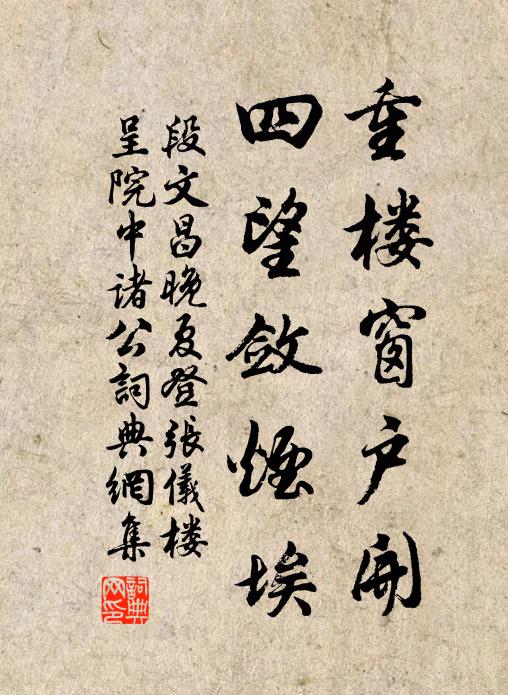 重楼窗户开
四望敛烟埃
段文昌晚夏登张仪楼
呈院中诸公词典网集
词典网印